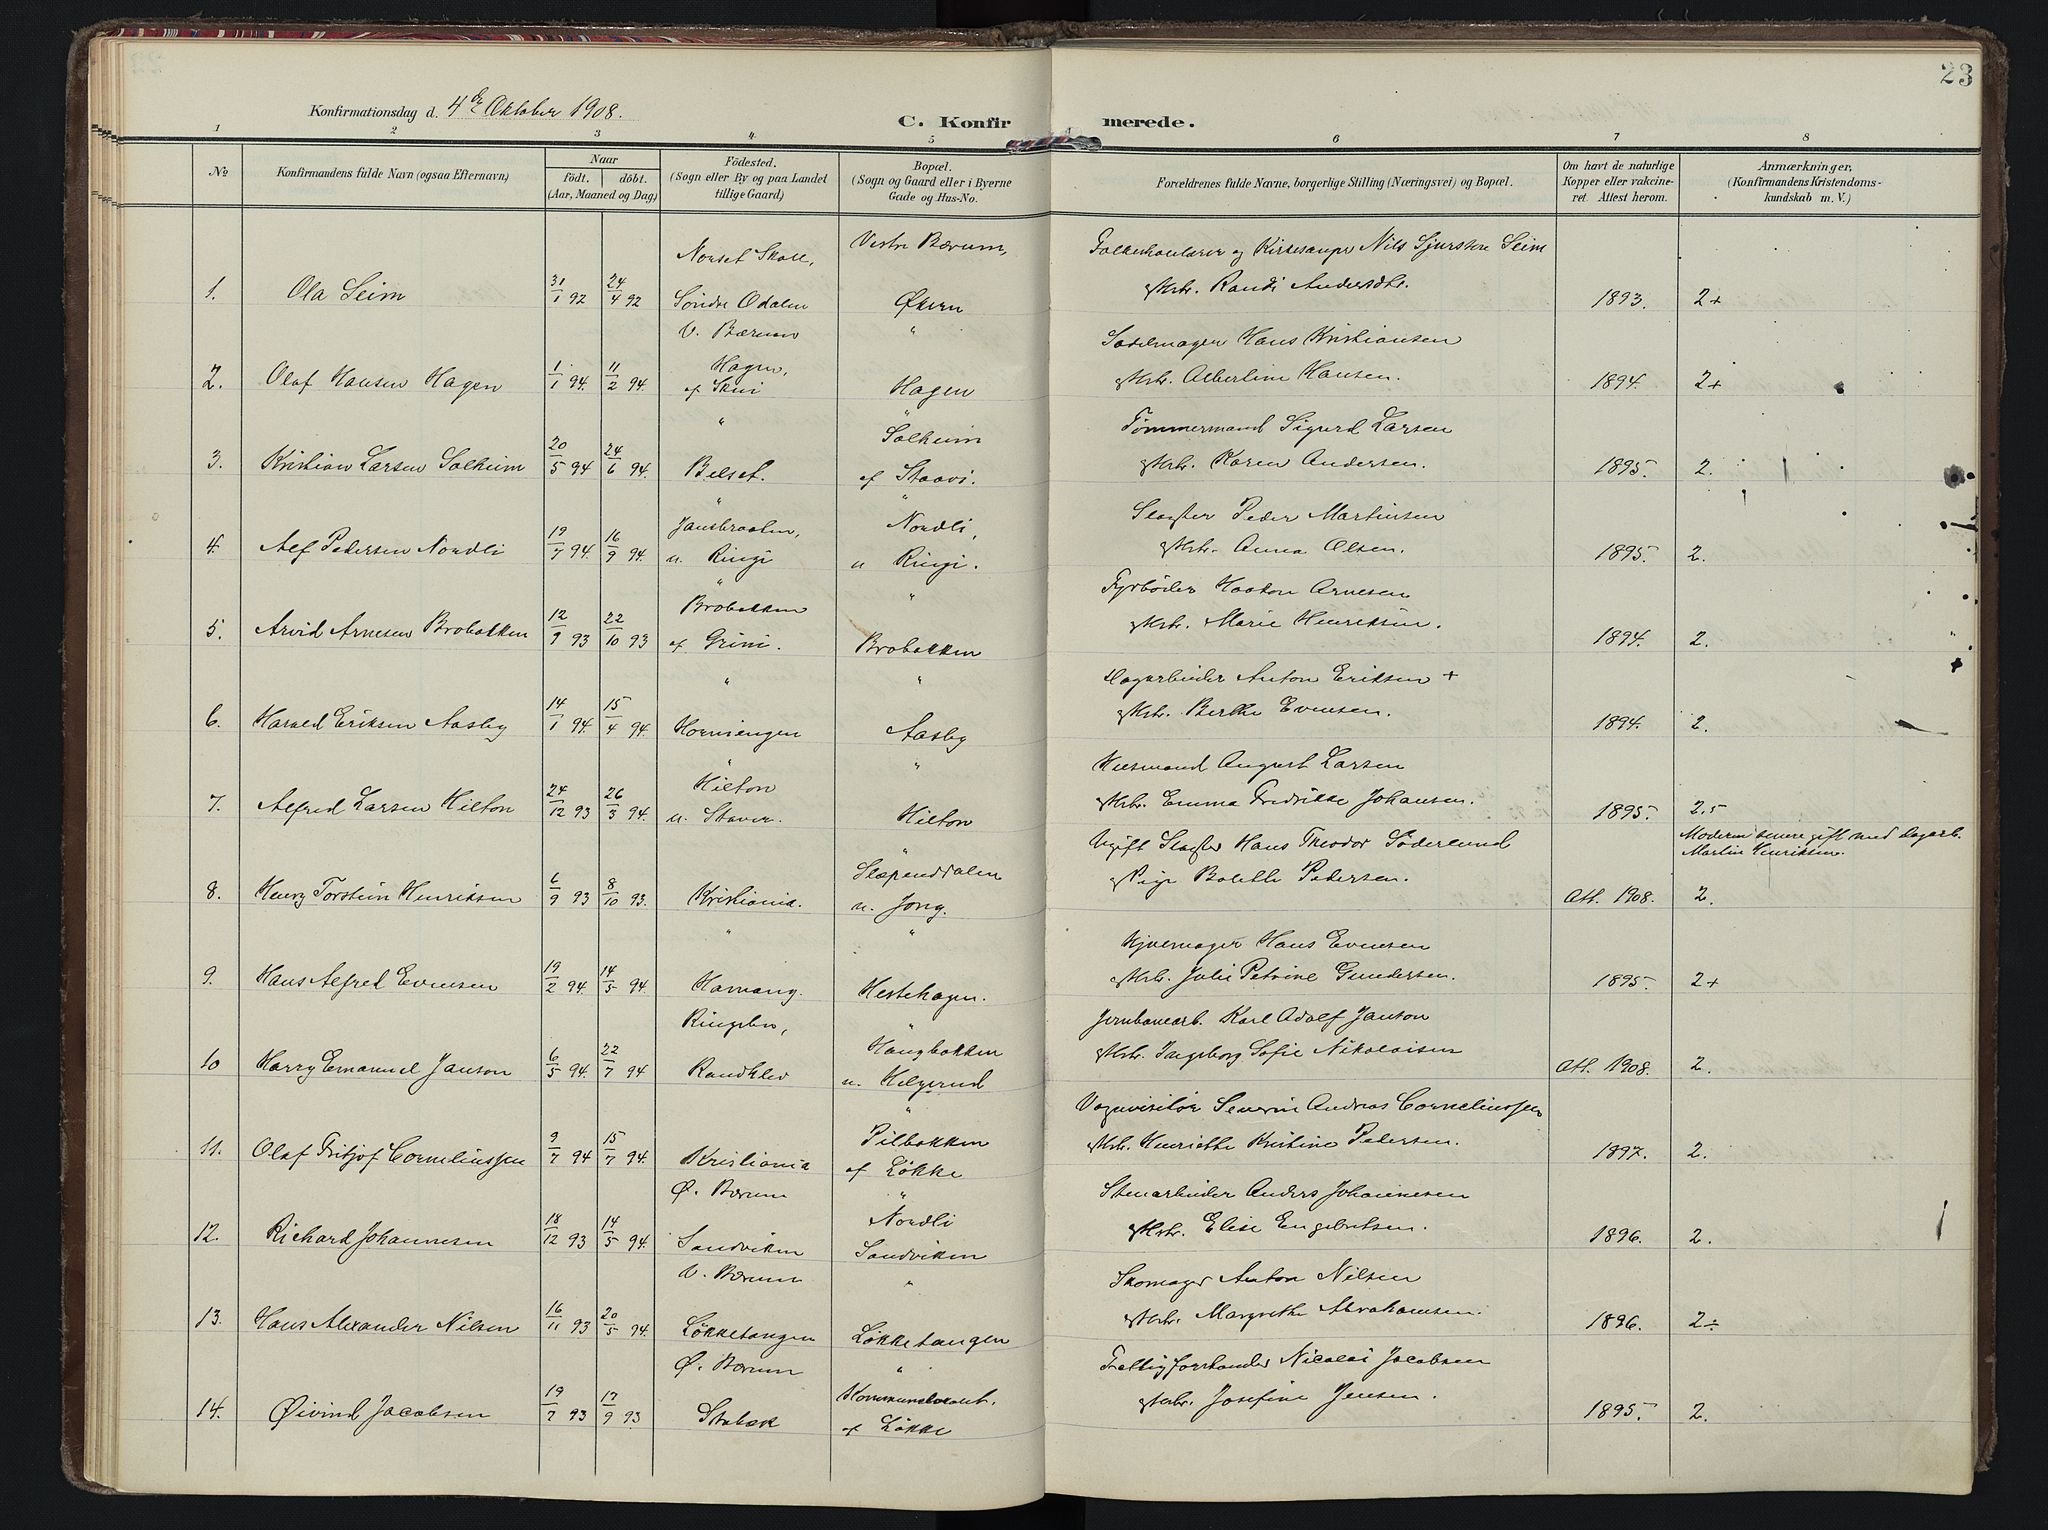 23
Konfirmationsdag d. 4de Oktober 1908.
C. Konfirmerede.
1 2 3 4 5 6 7 8
No
Konfirmandens fulde Navn (ogsaa Efternavn)
Naar
födt. döbt.
(Aar, Maaned og Dag)
Födested.
(Sogn eller By og paa Landet
tillige Gaard)
Bopæl.
(Sogn og Gaard eller i Byerne
Gade og Hus-No.
Forældrenes fulde Navne, borgerlige Stilling (Næringsvei) og Bopæl.
Om havt de naturlige
Kopper eller vakcine-
ret. Attest herom.
Anmærkninger,
(Konfirmandens Kristendoms-
kundskab m. V.)
Vestre Bærum,
og Kirkesanger Nils Sjursen Seim
1. Ola Seim 31/1 92 24/4 92 Söndre Odalen Økern
Randi 1893. 2+
V. Bærum "
Sadelmager Hans Kristiansen
2. Olaf Hansen Hagen 1/1 94. 11/2 94. Hagen, af Skui Hagen
Albertine Hansen. 1894. 2+
" "
Tømmermand Sigurd Larsen
3. Kristian Larsen Solheim 20/5 94 24/6 94. Belset. Solheim
Karen Andersen. 1895. 2.
" "
Slagter Peder Martinsen
4. Alf Pedersen Nordli 19/7 94. 16/9 94. u. Ringi Nordli, u Ringi.
Anna Olsen. 1895. 2.
" "
Fyrbøder Arnesen
5. Arvid Arnesen Brobakken 12/9 93 22/10 93 Brobakken af Grini. Brobakken
Marie Henriksen. 1894. 2.
" "
Anton Eriksen +
6. Harald Eriksen Aasby 14/1 94. 15/4 94. Horniengen Aasby
Berthe Evensen. 1894. 2.
" "
Husmand August Larsen
7. Alfred Larsen Hilton 24/12 93 26/3 94. Hilton Hilton
Emma Fredrikke Johansen. 1895. 2,5
"
Ugift Slagter Hans Theodor Söderlund
Moderen senere gift med Dagarb.
Martin Henriksen.
8. Henry Torstein Henriksen 6/9 93 8/10 93. Kristiania. Slæpenddalen u. Jong.
Pige Bolette Pedersen. Att. 1908. 2.
" "
Hans Evensen
9. Hans Alfred Evensen 19/2 94. 14/5 94. Hamang. Hestehagen.
Julie Petrine Gundersen. 1895. 2+
Ringebu, "
Jernbanearb. Karl Adolf Janson
10 Harry Emanuel Janson 6/5 94. 22/7 94 Randklev Haugbakken u. Helgerud
Ingeborg Sofie Nikolaisen Att. 1908. 2.
"
Vognvisitör Severin Andreas Corneliussen
11. Olaf Fritjof Corneliussen 9/7 94 15/7 94. Kristiania Pilbakken af Løkke
Henriette Kristine Pedersen. 1897. 2.
Ø. Bærum "
Stenarbeider Anders Johannesen
12. Richard Johannesen 18/12 93 14/5 94. Sandviken Nordli Sandviken
Elise Engebretsen. 1896. 2.
V. Bærum "
Skomager Anton Nilsen
13. Hans Alexander Nilsen 16/11 93 20/5 94. Løkketangen Løkketangen
Margrethe Abrahamsen. 1896. 2÷
Ø. Bærum "
Fattigforstander Nicolai Jacobsen
14. Øivind Jacobsen 19/7 93 17/9 93 Stabæk af Løkke
Josefine Jensen. 1895. 2.